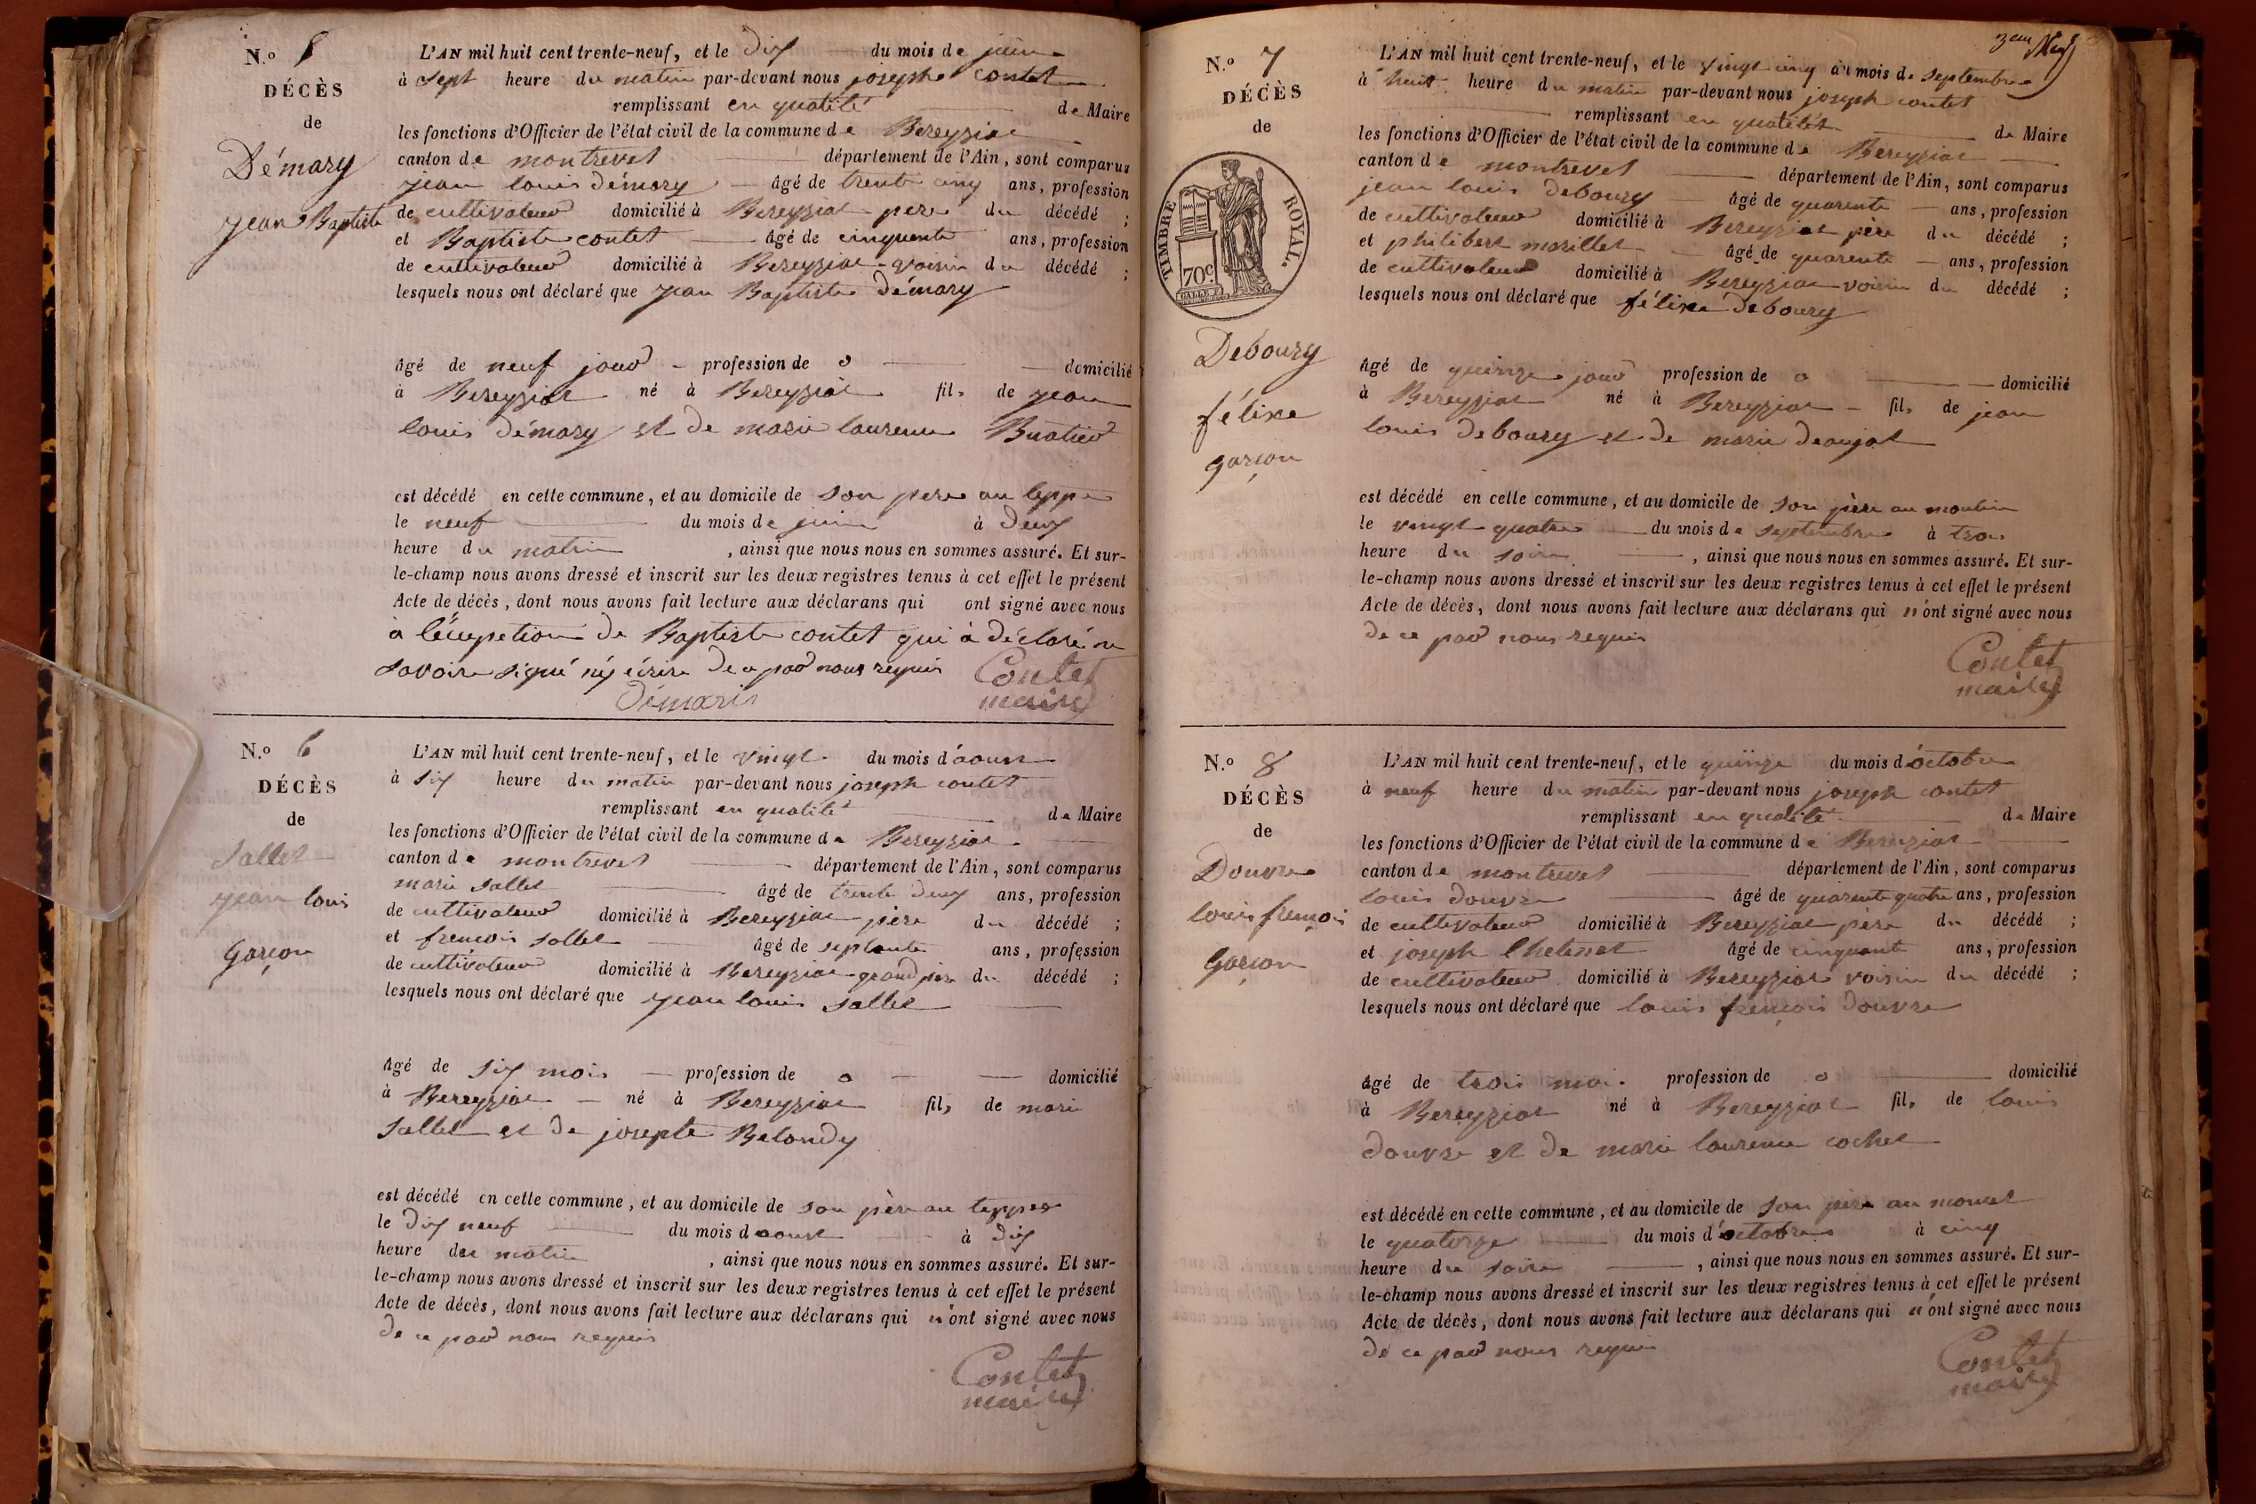 N.o 5
DÉCÈS
de
Démary
jean Baptiste
L'AN mil huit cent trente-neuf, et le dix du mois de juin
à sept heure du matin par-devant nous joseph contet
remplissant en qualité de Maire
les fonctions d'Officier de l'état civil de la commune de Bereyziat
canton de montrevel département de l'Ain, sont comparus
jean louis démary âgé de trente cinq ans, profession
de cultivateur domicilié à Bereyziat pere du décédé ;
et Baptiste contet âgé de cinquente ans, profession
de cultivateur domicilié à Bereyziat voisin du décédé ;
lesquels nous ont déclaré que jean Baptiste démary
âgé de neuf jour profession de o domicilié
à Bereyziat né à Bereyziat fils de jean
louis démary et de marie laurence Buatier
est décédé en cette commune, et au domicile de son pere au teppe
le neuf du mois de juin à deux
heure du matin , ainsi que nous nous en sommes assuré. Et sur-
le-champ nous avons dressé et inscrit sur les deux registres tenus à cet effet le présent
Acte de décès, dont nous avons fait lecture aux déclarans qui ont signé avec nous
à l'écepetion de Baptiste contet qui à déclaré ne
savoire signé ny écrire de ce par nous requis
Contet
démaris maire
N.o 6
DÉCÈS
de
Sallet
jean louis
Garçon
L'AN mil huit cent trente-neuf, et le vingt du mois d'aoust
à six heure du matin par-devant nous joseph contet
remplissant en qualité de Maire
les fonctions d'Officier de l'état civil de la commune de Bereyziat
canton de montrevel département de l'Ain, sont comparus
marie sallet âgé de trente deux ans, profession
de cultivateur domicilié à Bereyziat père du décédé ;
et frencois sallet âgé de septante ans, profession
de cultivateur domicilié à Bereyziat grand père du décédé ;
lesquels nous ont déclaré que jean louis sallet
âgé de six mois profession de o domicilié
à Bereyziat né à Bereyziat fils de marie
sallet et de josepte Belondy
est décédé en cette commune, et au domicile de son père au teppes
le dix neuf du mois d aoust à dix
heure du matin , ainsi que nous nous en sommes assuré. Et sur-
le-champ nous avons dressé et inscrit sur les deux registres tenus à cet effet le présent
Acte de décès, dont nous avons fait lecture aux déclarans qui n'ont signé avec nous
de ce par nous requis
Contet
maire
N.o 7
DÉCÈS
de
TIMBRE ROYAL.
70c
Déboury
félixe
garçon
L'AN mil huit cent trente-neuf, et le vingt cinq du mois de septembre
à huit heure du matin par-devant nous joseph contet
remplissant en qualités de Maire
les fonctions d'Officier de l'état civil de la commune de Bereyziat
canton de montrevel département de l'Ain, sont comparus
jean louis deboury âgé de quarente ans, profession
de cultivateur domicilié à Bereyziat père du décédé ;
et philibert morillet âgé de quarente ans, profession
de cultivateur domicilié à Bereyziat voisin du décédé ;
lesquels nous ont déclaré que félixe deboury
âgé de quinze jour profession de o domicilié
à Bereyziat né à Bereyziat fils de jean
louis deboury et de marie deaujat
est décédé en cette commune, et au domicile de son père au moulin
le vingt quatre du mois de septembre à trois
heure du soire , ainsi que nous nous en sommes assuré. Et sur-
le-champ nous avons dressé et inscrit sur les deux registres tenus à cet effet le présent
Acte de décès, dont nous avons fait lecture aux déclarans qui n'ont signé avec nous
de ce par nous requis
Contet
maire
N.o 8
DÉCÈS
de
Douvre
louis françois
Garçon
L'AN mil huit cent trente-neuf, et le quinze du mois d'octobre
à neuf heure du matin par-devant nous joseph contet
remplissant en qualité de Maire
les fonctions d'Officier de l'état civil de la commune de Bereyziat
canton de montrevel département de l'Ain, sont comparus
louis douvre âgé de quarente quatre ans, profession
de cultivateur domicilié à Bereyziat père du décédé ;
et joseph Chatenet âgé de cinquant ans, profession
de cultivateur domicilié à Bereyziat voisin du décédé ;
lesquels nous ont déclaré que louis françois douvre
âgé de trois mois profession de o domicilié
à Bereyziat né à Bereyziat fils de louis
douvre et de marie laurence cochet
est décédé en cette commune, et au domicile de son père au moncet
le quatorze du mois d'octobre à cinq
heure du soire , ainsi que nous nous en sommes assuré. Et sur-
le-champ nous avons dressé et inscrit sur les deux registres tenus à cet effet le présent
Acte de décès, dont nous avons fait lecture aux déclarans qui n'ont signé avec nous
de ce par nous requis
Contet
maire